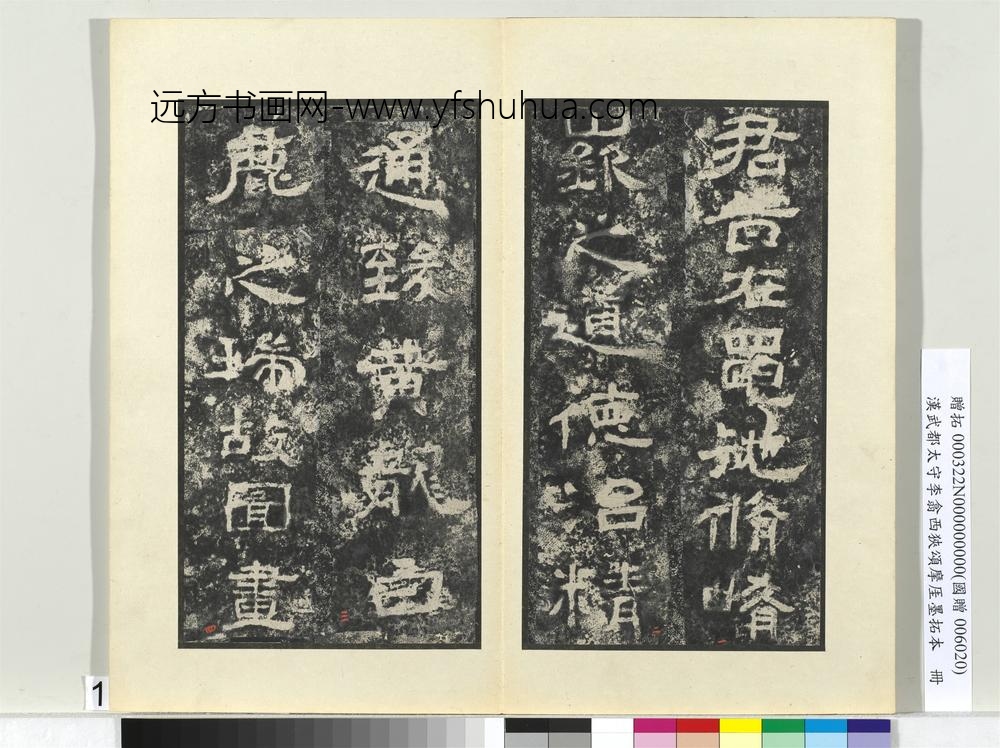 远方书画网-www.yfshuhua.com
君昔在黽池脩崤
嶔之道德治精
通致黄龍白
鹿之瑞故圖畫
一
二
三
四
1
贈拓 000322N000000000(國贈 006020)
漢武都太守李翕西狹頌摩厓墨拓本 冊